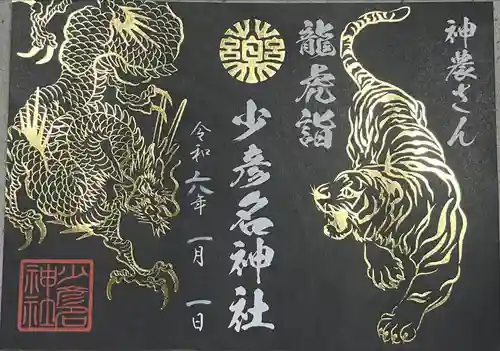 神農さん
龍虎詣
薬
少彦名神社
令和六年 一月 一日
少彦名神社